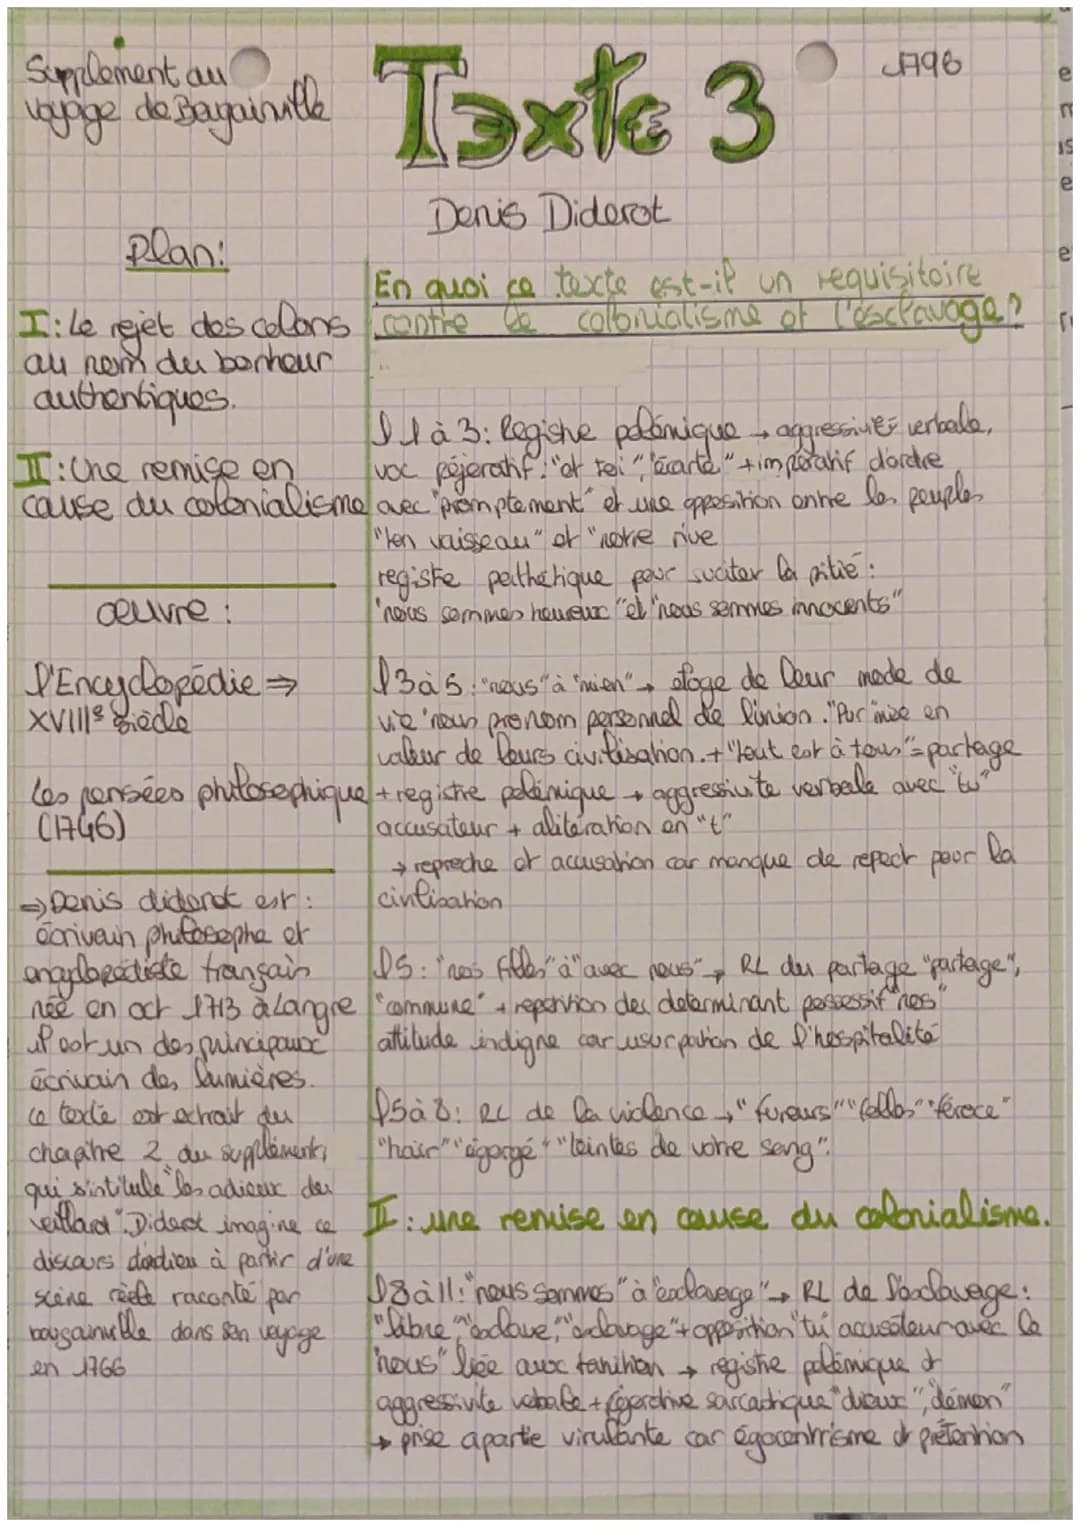 Supplément au
voyage de Bagainville
Texte 3
1796
Denis Diderot
Plan:
I: Le rejet des colons
au nom du bonheur
authentiques.
II: Une remise en
cause du colonialisme
œuvre :
l'Encyclopédie ⇒
XVIIIe siècle
Les pensées philosophique
(1746)
⇒ Denis diderot est :
écrivain philosophe et
encyclopédiste français
née en oct 1713 à Langre
il est un des principaux
écrivain des lumières.
ce texte est extrait du
chapitre 2 du supplément,
qui s'intitule "les adieux du
veillard". Diderot imagine ce
discours d'adieu à partir d'une
scène réele raconté par
bougainville dans son voyage
en 1766
En quoi ce texte est-il un requisitoire
contre le colonialisme et l'esclavage?
l 1 à 3: Registre polémique → aggressivité verbale,
voc péjoratif: "et toi" "écarte" + impératif d'ordre
avec "promptement" et une opposition entre les peuples
"ton vaisseau" et "notre rive
registre pathétique pour suciter la pitié :
"nous sommes heureux" et "nous sommes innocents"
l 3 à 5 : "nous" à "mien" → éloge de leur mode de
vie "nous pronom personnel de l'union. "Pur" mise en
valeur de leurs civilisation. + "tout est à tous" = partage
+ registre polémique → aggressivite verbale avec "tu"
accusateur + alitération en "t"
→ reproche et accusation car manque de repect pour la
civilisation
l 5 : "nos filles" à "avec nous" → RL du partage "partage",
"commune" + repetition des determinant possessif "nos"
attitude indigne car usurpation de l'hospitalité
l 5 à 8: RL de la violence → "fureurs" "folles" "féroce"
"haïr" "égorgé" + "teintes de votre sang".
II : une remise en cause du colonialisme.
l 8 à 11: "nous sommes" à "esclavage" → RL de l'esclavage :
"libre", "esclave", "esclavage" + opposition "tu accusateur avec le
"nous" liée aux tahitien → registre polémique et
aggressivite vebale + péjorative sarcastique "dieux", "démon"
→ prise apartie virulante car égocentrisme et prétention